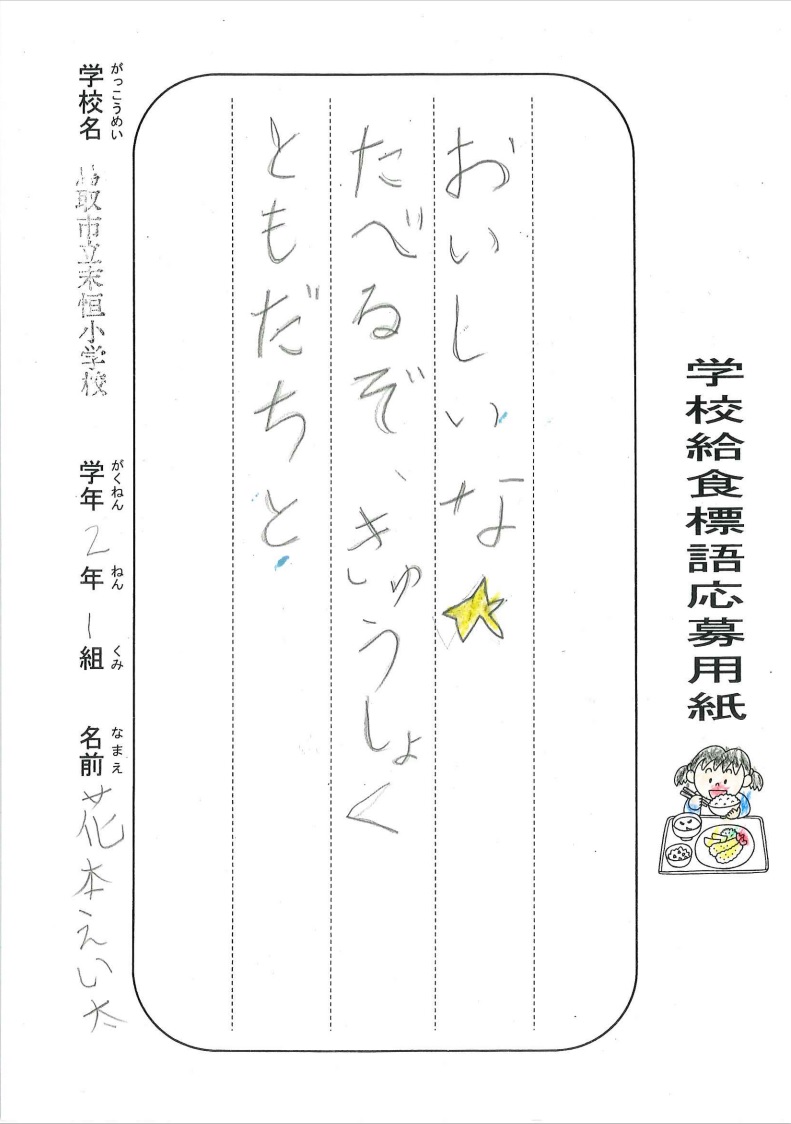 学校給食標語応募用紙
おいしいな
たべるぞ、きゅうしょく
ともだちと
学校名 がっこうめい 鳥取市立末恒小学校
学年 がくねん 2年 ねん 1組 くみ
名前 なまえ 花本えい太